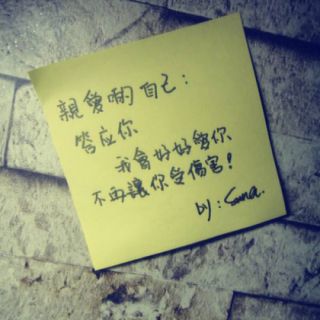 親愛啲自己：
答应你
我會好好愛你
不再讓你受傷害！
by: